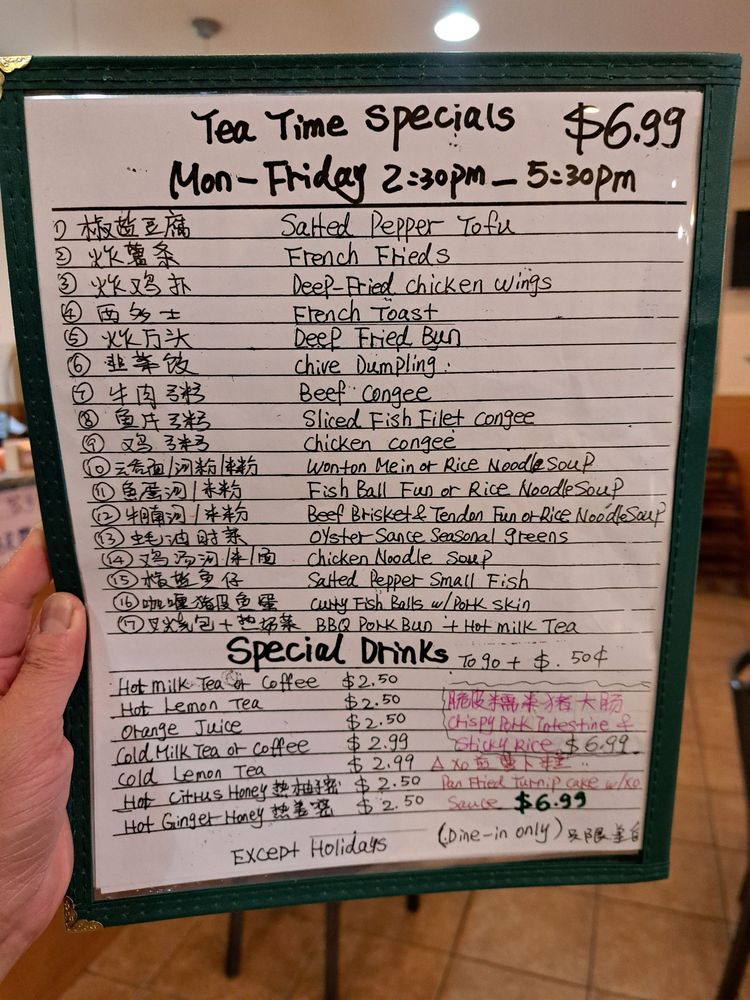 Tea Time Specials $6.99
Mon-Friday 2:30pm - 5:30pm
1) 椒盐豆腐 Salted Pepper Tofu
② 炸薯条 French Frieds
③ 炸鸡扒 Deep-Fried chicken wings
④ 西多士 French Toast
⑤ 炸万头 Deep Fried Bun
⑥ 韭菜饺 chive Dumpling
⑦ 牛肉粥 Beef Congee
⑧ 鱼片粥 Sliced Fish Filet congee
⑨ 鸡粥 Chicken congee
⑩ 云吞面/河粉/米粉 Wonton Mein or Rice Noodle Soup
⑪ 鱼蛋河/米粉 Fish Ball Fun or Rice Noodle Soup
⑫ 牛腩河/米粉 Beef Brisket & Tendon Fun or Rice Noodle Soup
⑬ 蚝油时菜 Oyster Sance Seasonal greens
⑭ 鸡汤河/米/面 Chicken Noodle Soup
⑮ 椒盐鱼仔 Salted Pepper Small Fish
⑯ 咖喱猪皮鱼蛋 Curry Fish Balls w/Pork skin
⑰ 叉烧包+热奶茶 BBQ Pork Bun + Hot milk Tea
Special Drinks To go + $.50¢
Hot milk Tea or Coffee $2.50
Hot Lemon Tea $2.50
Orange Juice $2.50
Cold Milk Tea or Coffee $2.99
Cold Lemon Tea $2.99
Hot Citrus Honey 热柚蜜 $2.50
Hot Ginger Honey 热姜蜜 $2.50
脆皮糯米猪大肠
Crispy Pork Intestine &
Sticky Rice $6.99
XO 萝卜糕
Pan Fried Turnip cake w/XO
Sauce $6.99
(Dine-in only) 只限堂食
Except Holidays